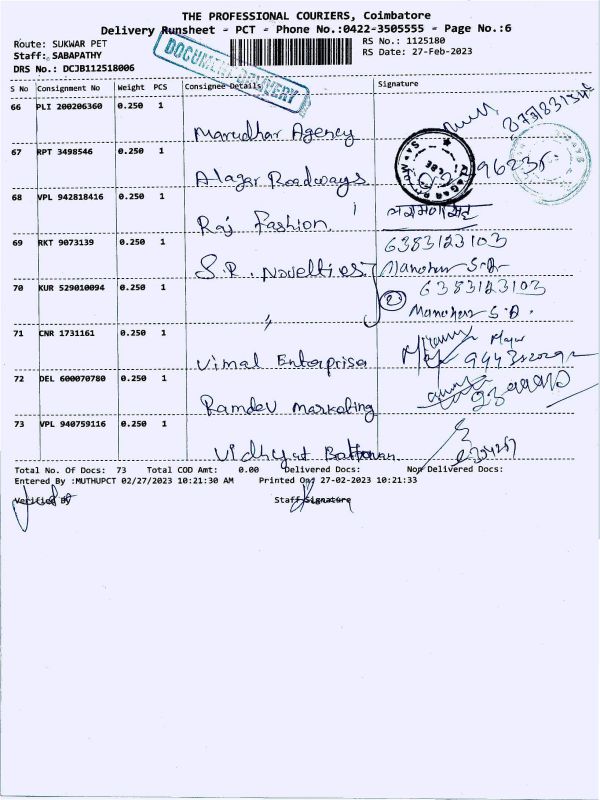 THE PROFESSIONAL COURIERS, Coimbatore
Delivery Runsheet - PCT - Phone No.:0422-3505555 - Page No.:6
Route: SUKWAR PET
RS No.: 1125180
Staff: SABAPATHY
RS Date: 27-Feb-2023
DRS No.: DCJB112518006
DOCUMENT DELIVERY
S No Consignment No Weight PCS Consignee Details Signature
66 PLI 200206360 0.250 1
Marudhar Agency
67 RPT 3498546 0.250 1
Alagar Roadways
68 VPL 942818416 0.250 1
Raj Fashion
69 RKT 9073139 0.250 1 6383123103
S.R. Novelties Manohar
70 KUR 529010094 0.250 1 6383123103
23 Manohar S.R.
71 CNR 1731161 0.250 1
Vimal Enterprise
72 DEL 600070780 0.250 1
Ramdev Marketing
73 VPL 940759116 0.250 1
Vidhyut
Total No. Of Docs: 73 Total COD Amt: 0.00 Delivered Docs: Non Delivered Docs:
Entered By :MUTHUPCT 02/27/2023 10:21:30 AM Printed On: 27-02-2023 10:21:33
Verified By Staff Signature